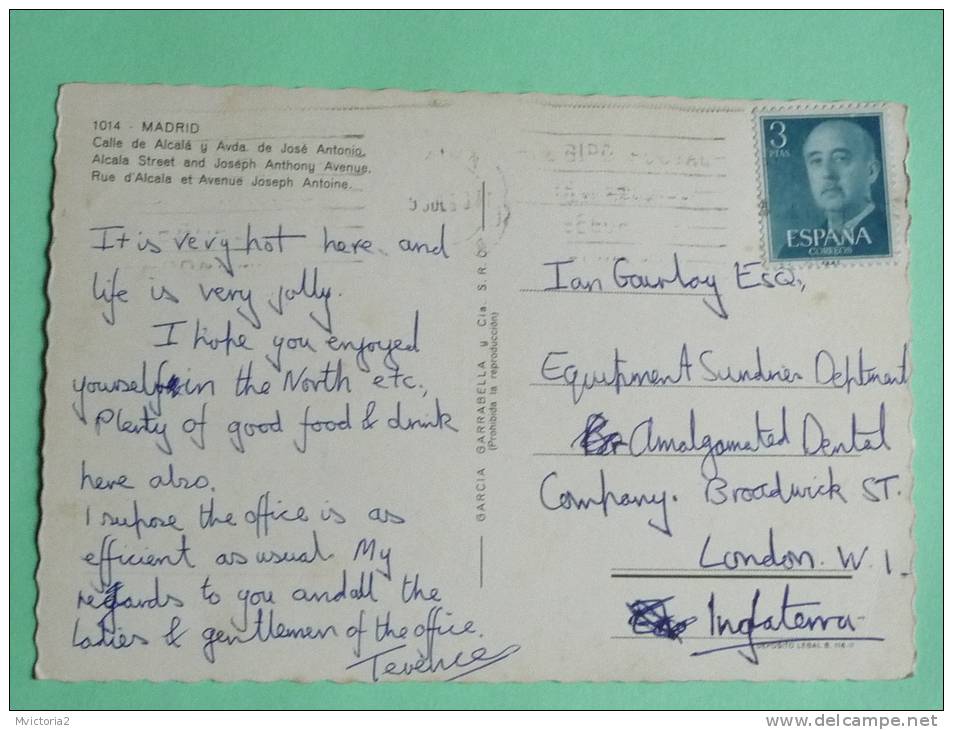 1014 - MADRID
Calle de Alcalá y Avda. de José Antonio.
Alcala Street and Joséph Anthony Avenue.
Rue d'Alcala et Avenue Joseph Antoine.
It is very hot here and
life is very jolly.
I hope you enjoyed
yourself in the North etc.,
Plenty of good food & drink
here also.
I supose the office is as
efficient as usual. My
regards to you and all the
Ladies & gentlemen of the office.
Terence
GARCIA GARRABELLA y Cia. S. R. C.
(Prohibida la reproducción)
3
PTAS
ESPAÑA
CORREOS
Ian Gourlay Esq.,
Equipment & Sundries Deptment
Amalgamated Dental
Company. Broadwick St.
London. W. 1.
Inglaterra
DEPOSITO LEGAL B.
Mvictoria2
www.delcampe.net